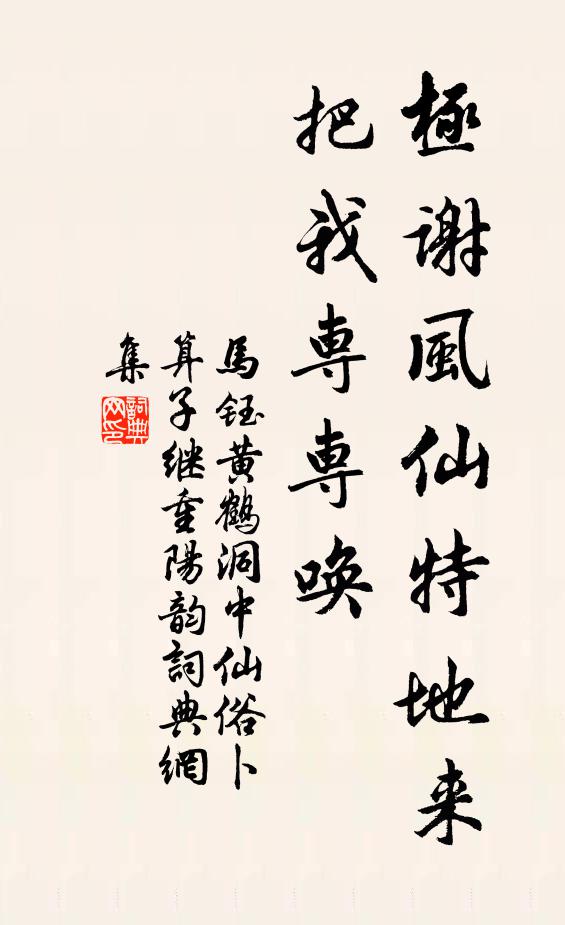 極謝風仙特地来
把我専専唤
馬鈺黄鶴洞中仙俗卜
算子继重陽韵詞典網
集
詞典
网印